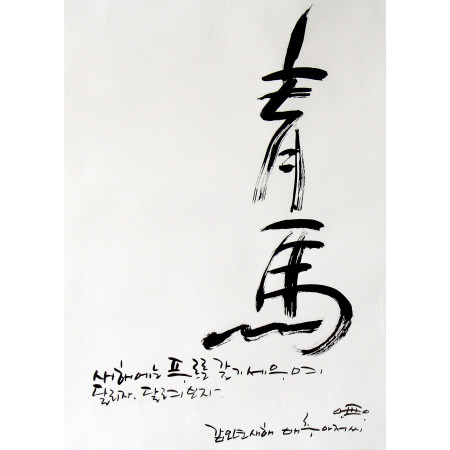 青馬
새해에는 푸르른 갈기세우며
달리자. 달려보자.
갑오년새해 배추아저씨